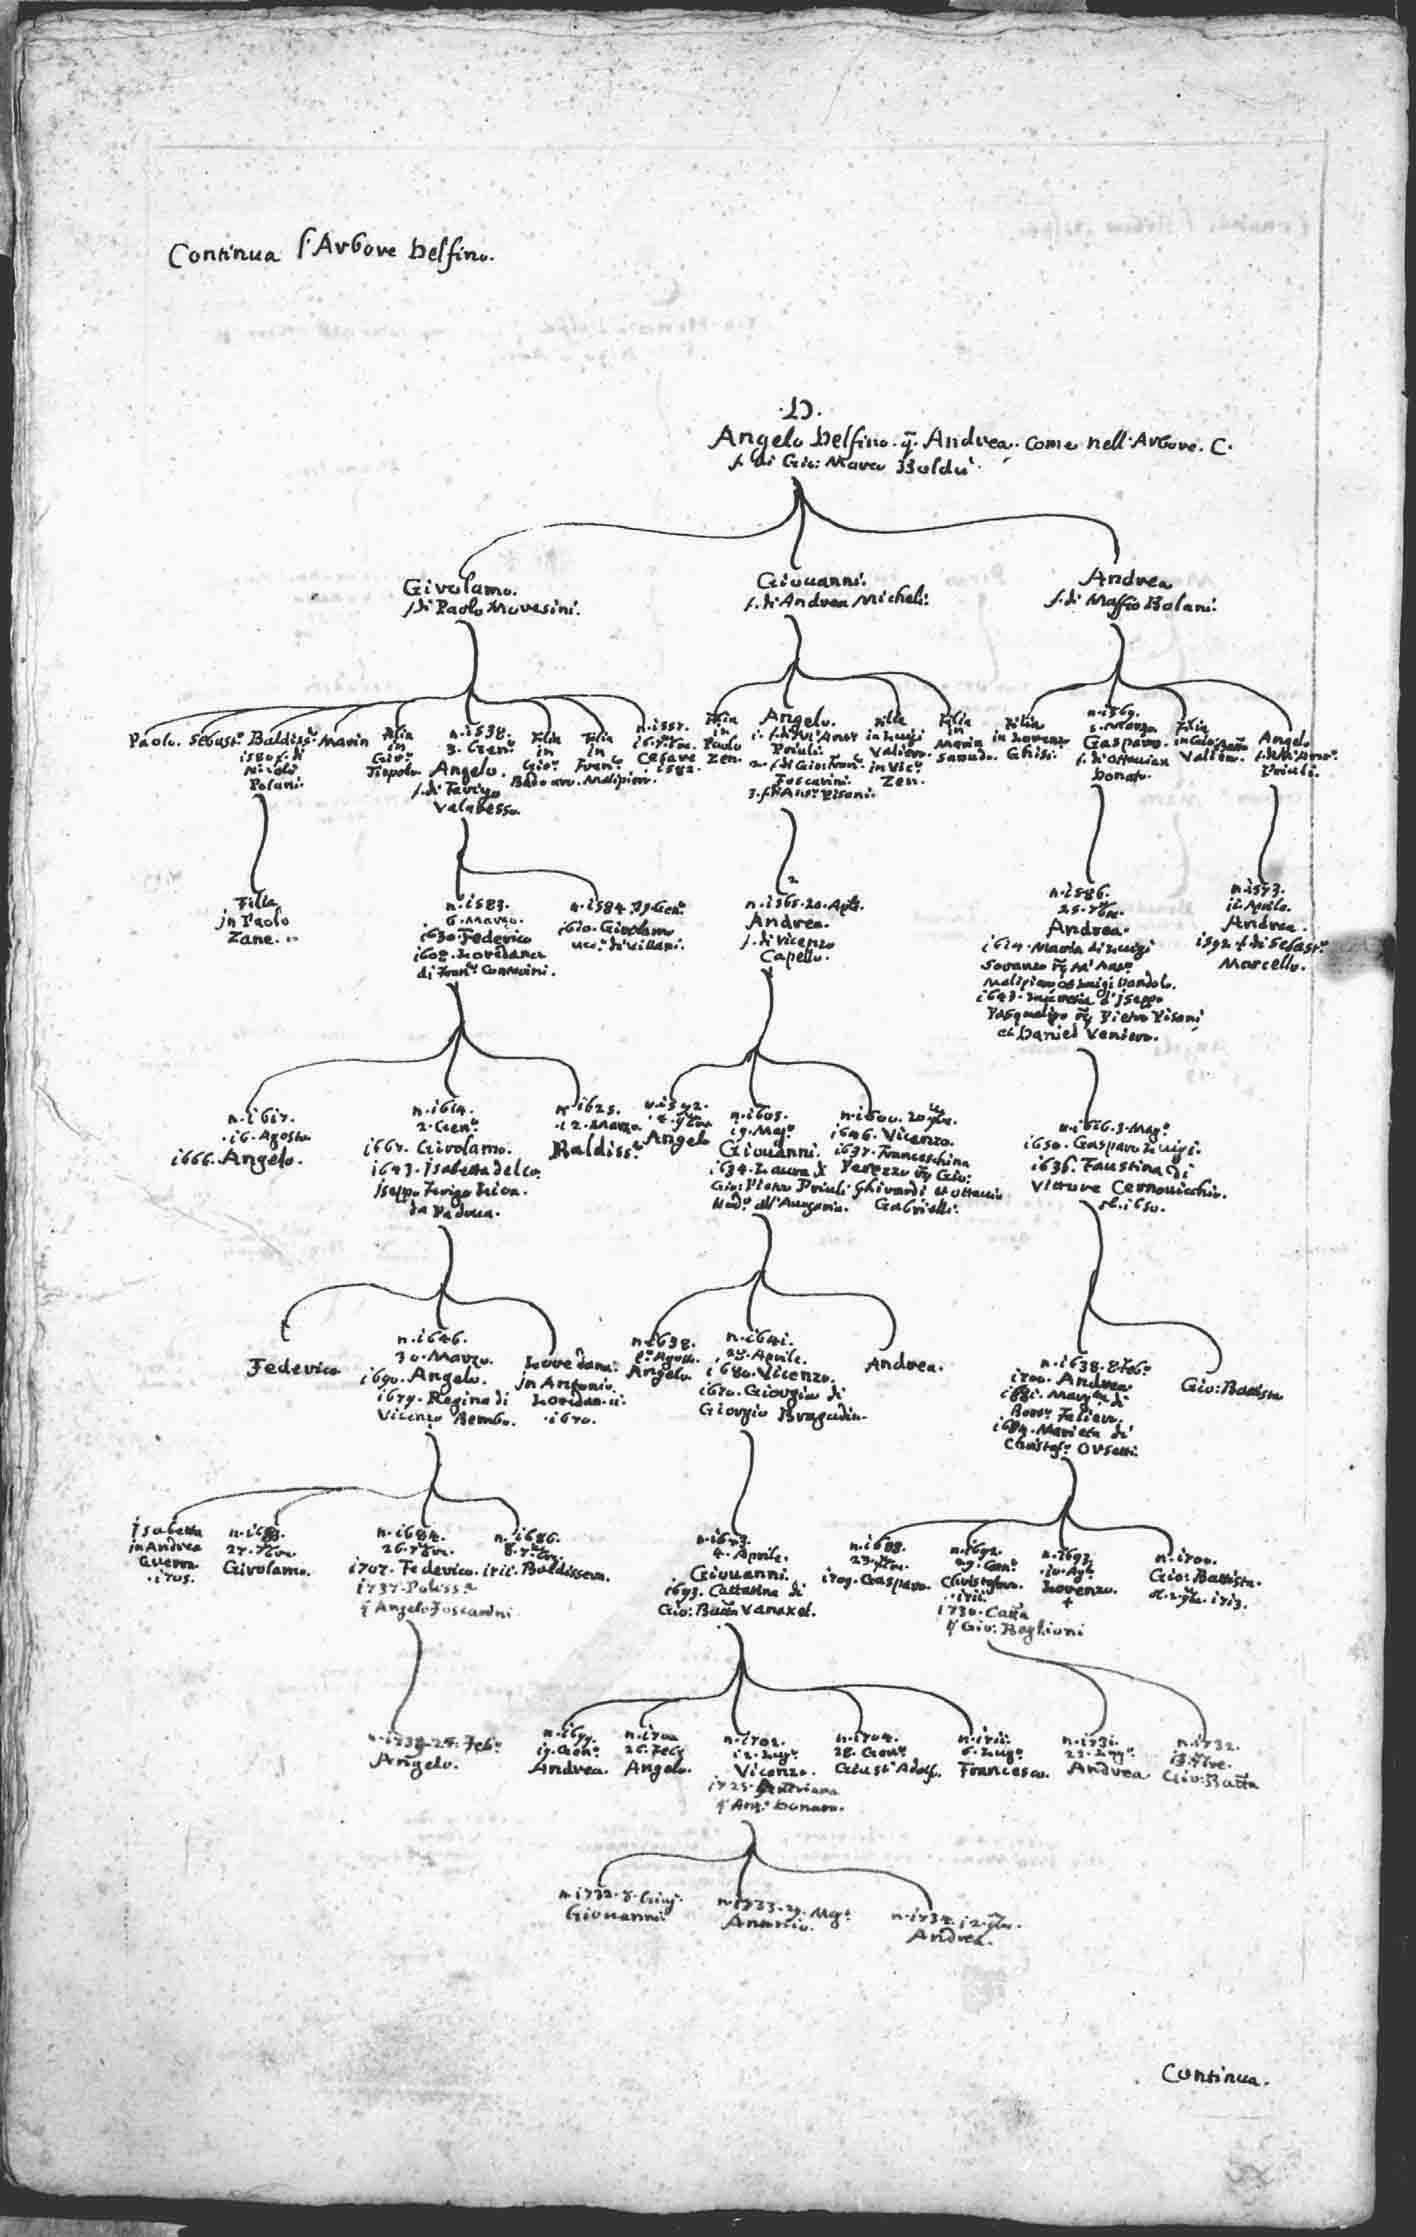 Continua l'Arbore Delfino.
.D.
Angelo Delfino. q. Andrea. Come nell'Arbore. C.
f. di Gio: Marco Boldù
Girolamo.
f. di Paolo Moresini.
Giouanni.
f. di Andrea Micheli.
Andrea
f. di Maffio Bolani.
Paolo.
Sebast.º
Baldiss.ª
1580. f. di
Nicolò
Polani.
Marin
Filia
in
Gir.º
Tiepolo
n. 1538.
3. Gen.º
Angelo.
f. di Ferigo
Valaresso.
Filia
in
Gio:
Badoaro.
Filia
in
Fran.º
Malipiero.
n. 1557.
Cesare
1582.
Filia
in
Paolo
Zen.
Angelo.
1. f. di M. Ant.º
Priuli.
2. f. di Gio: Fran.º
Foscarini.
3. f. di Ant.º Pisani.
Filia
in Luigi
Valiero.
in Vic.º
Zen.
Filia
in
Marin
Sanudo.
Filia
in Lorenzo
Ghisi.
n. 1569.
5. Marzo
Gasparo.
f. di Ottavian
Donato.
Filia
Valiero.
Angelo
f. di M. Ant.º
Priuli.
Filia
in Paolo
Zane.
n. 1583.
6. Marzo.
1630. Federico
1602. Loredana
di Fran.º Contarini.
n. 1584. 29. Gen.º
1610. Girolamo
ucc.º di Villani.
2
n. 1565. 20. Aple.
Andrea.
f. di Vicenzo
Capello.
n. 1586.
25. 7bre.
Andrea.
1614. Maria di Luigi
Soranzo
Malipiero et Luigi Dandolo.
1643. d'Iseppo
Pasqualigo Pietro Pisani
et Daniel Veniero.
n. 1573.
11. Aprile.
Andrea.
1592. f. di Sebast.º
Marcello.
n. 1617.
16. Agosto
1666. Angelo.
n. 1614.
2. Gen.º
1667. Girolamo.
1643. Isabetta del Co.
Iseppo Ferigo
da Padoua.
n. 1625.
12. Marzo
Baldiss.ª
n. 1592.
Angelo
n. 1605.
19. Mag.º
Giouanni.
1634. Laura di
Gio: Pietro Priuli
n. 1600. 20. 9bre.
1646. Vicenzo.
1637. Franceschina
Perazzo Gio:
Ghirardi et Ottauio
Gabrielli.
n. 1616. 3. Mag.º
1650. Gasparo Luigi.
1636. Faustina di
Vittore Cernouicchio.
ob. 1650.
Federico
n. 1646.
30. Marzo.
1690. Angelo.
1679. Regina di
Vicenzo Bembo.
Loredana.
in Antonio
Loredan
1670.
n. 1638.
Agosto.
Angelo.
n. 1641.
28. Aprile.
1680. Vicenzo.
1670. Giorgia di
Giorgio Bragadin.
Andrea.
n. 1638. 8. Feb.º
1700. Andrea
1681. di
Falier.
1684. Marieta di
Christof.º Orsetti.
Gio: Battista
Isabetta
in Andrea
Guerra
1705.
27. 7bre
Girolamo.
n. 1684.
26. 7bre.
1707. Federico.
1737. Poliss.ª
q. Angelo Foscarini
n. 1686.
8. 7bre.
1711. Baldissera.
n. 1673.
4. Aprile.
Giouanni.
1693. Cattarina di
Gio: Batta Vanaxel.
n. 1688.
1709. Gasparo.
n. 1692.
29. Gen.º
Christoforo.
1711.
1730. Catta
q. Gio: Baglioni
n. 1693.
Lorenzo.
+
n. 1700.
Gio: Battista.
1713.
24. Feb.º
Angelo.
n. 1699.
19. Gen.º
Andrea.
n. 1700
26. Feb.º
Angelo.
n. 1702.
12. Lug.º
Vicenzo.
1725.
q. Ant.º Donato.
n. 1704.
28. Gen.º
Giust.º Adolf.
n. 1711.
6. Lug.º
Francesco.
n. 1731.
22. Lug.º
Andrea
n. 1732.
Gio: Batta
n. 1732. 8. Giug.
Giouanni
n. 1733. 29. Mg.º
Antonio.
n. 1734. 12.
Andrea.
Continua.